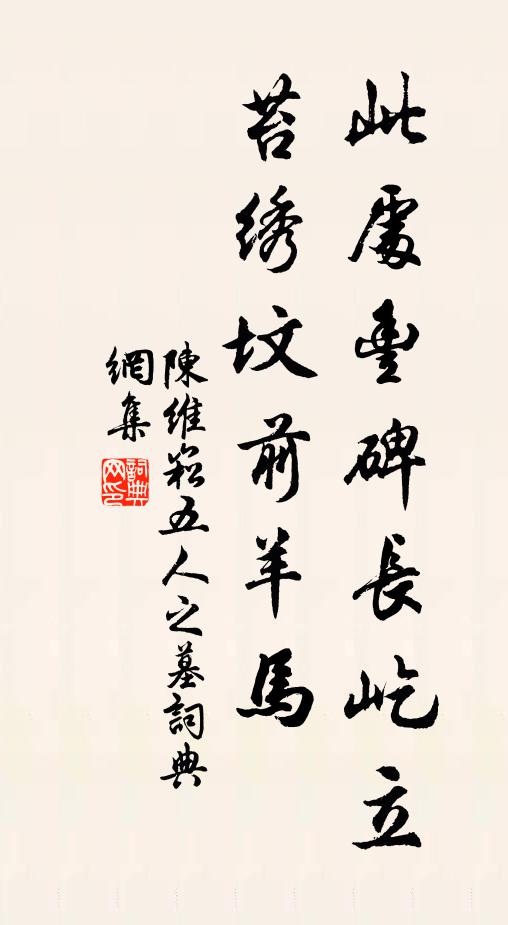 此處豊碑長屹立
苔绣坟前羊馬
陳維崧五人之墓詞典
網集
詞典网印